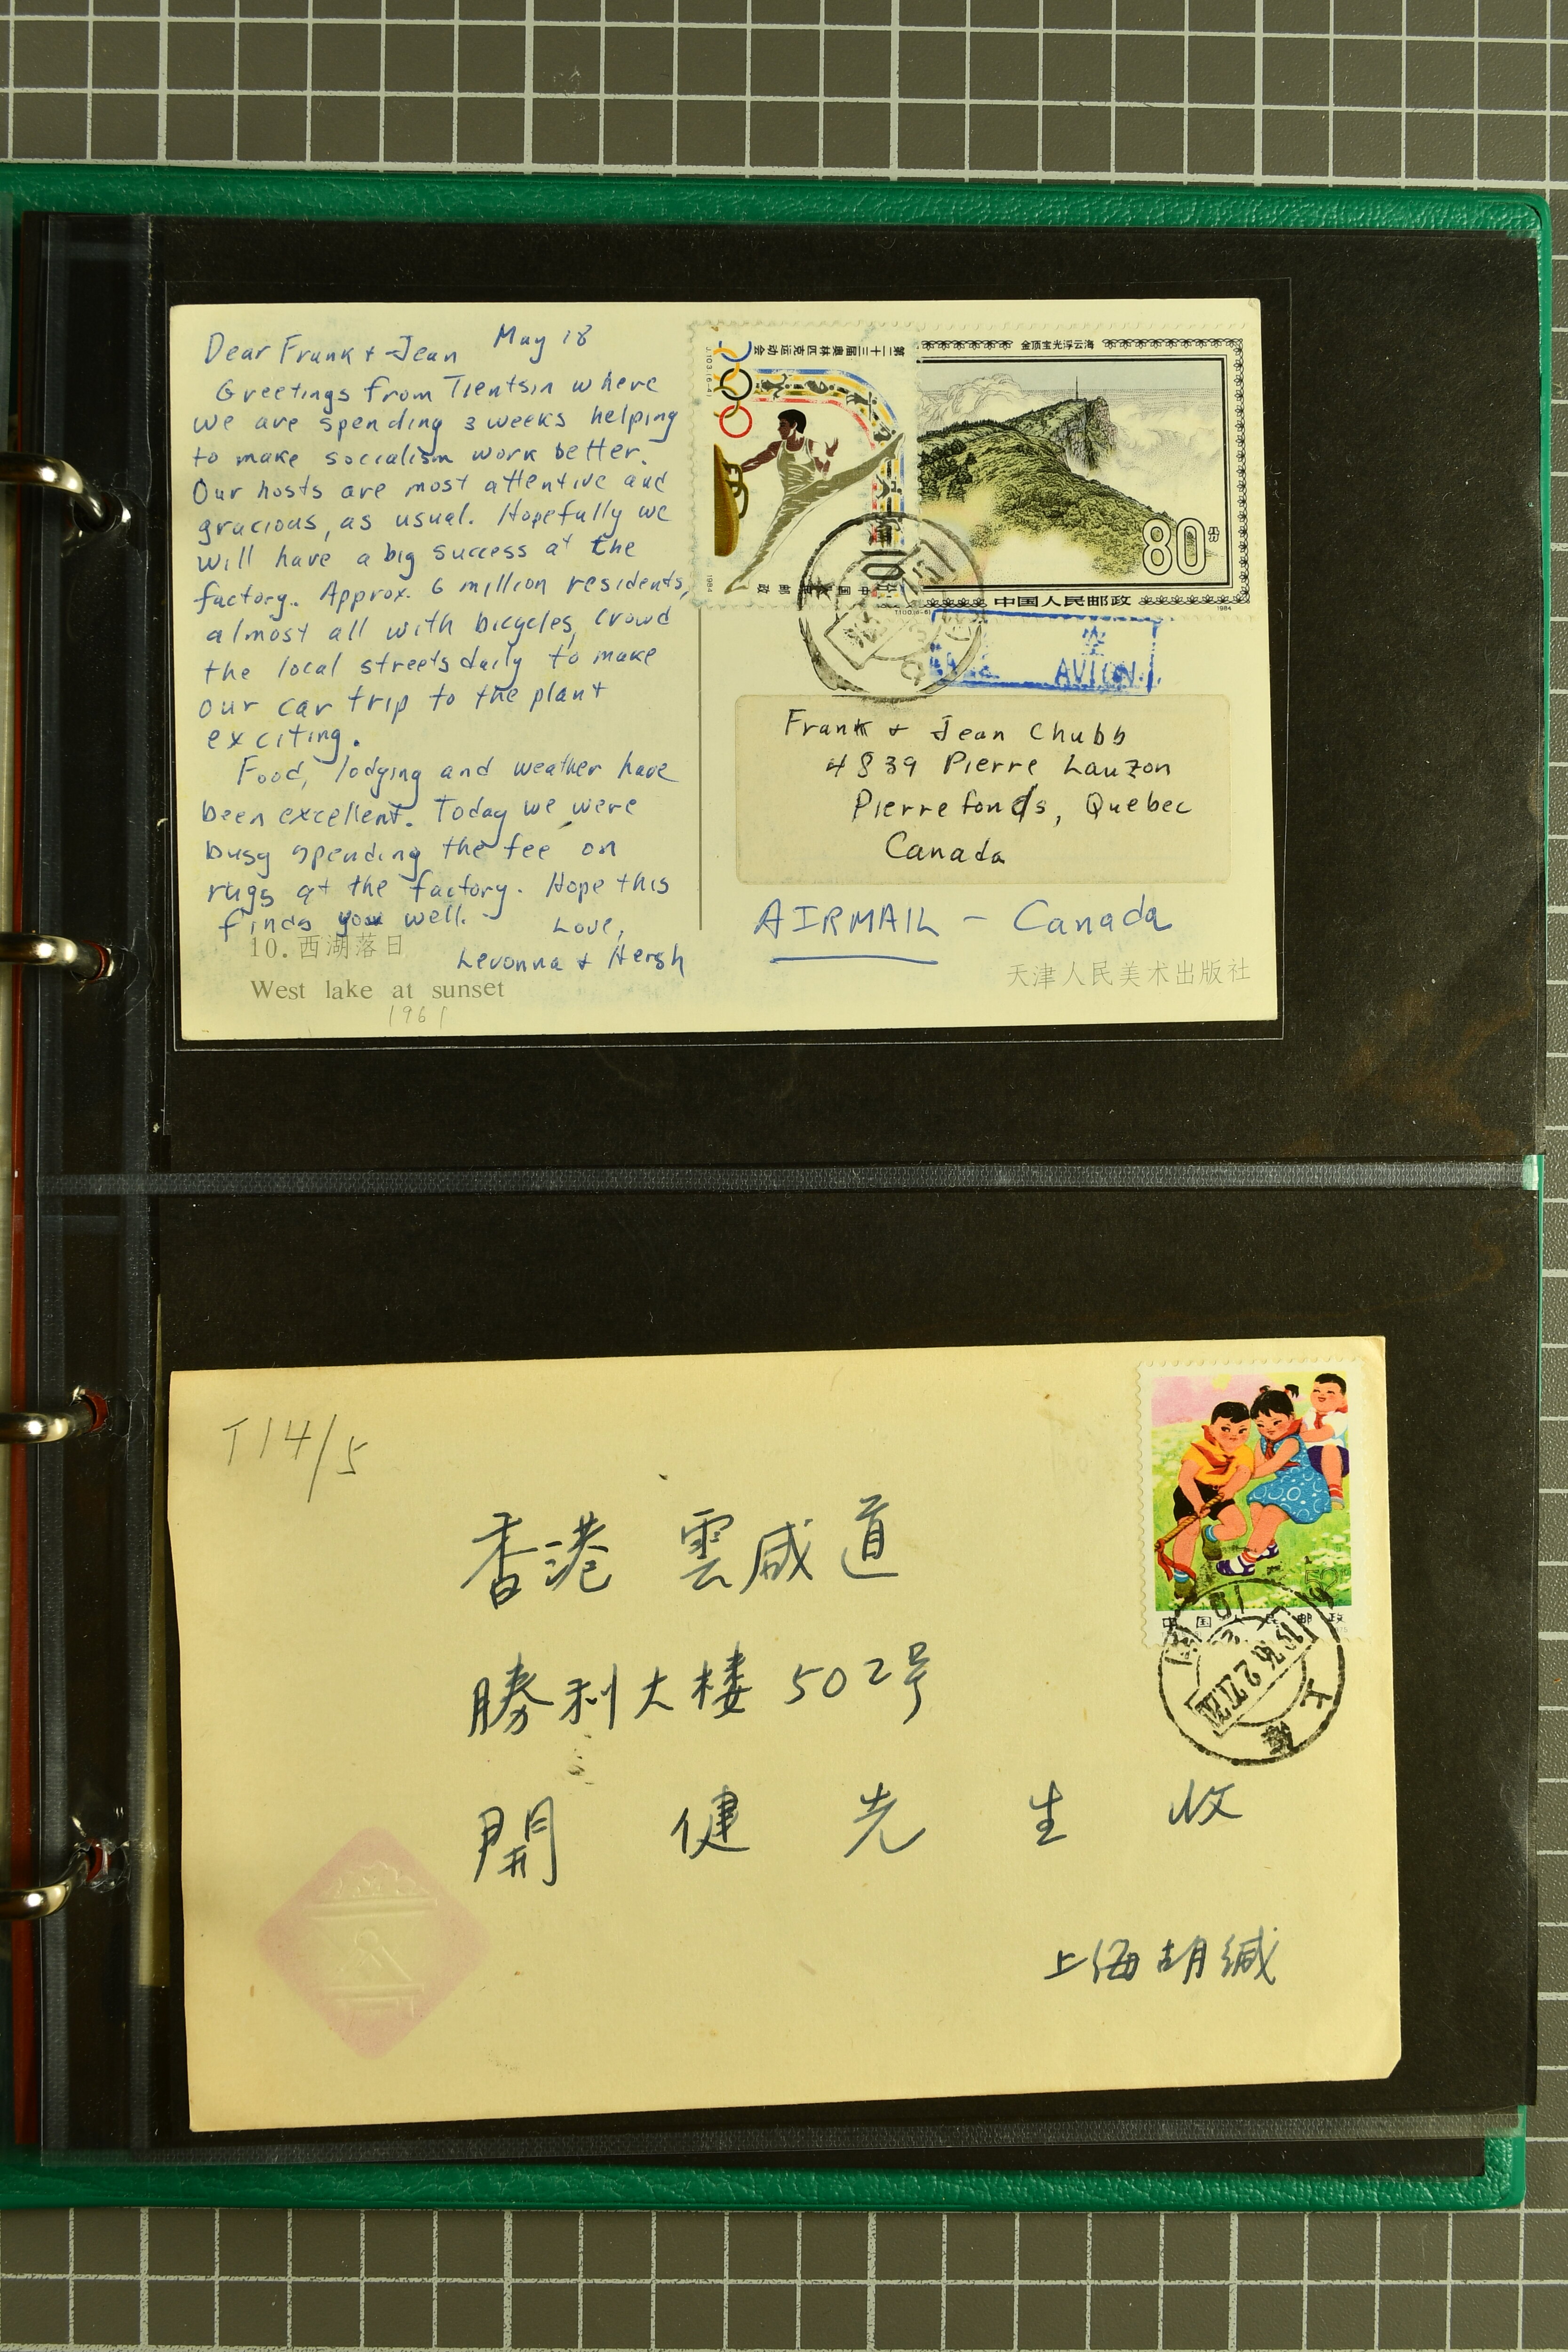 Dear Frank + Jean May 18
Greetings from Tientsin where
we are spending 3 weeks helping
to make socialism work better.
Our hosts are most attentive and
gracious, as usual. Hopefully we
will have a big success at the
factory. Approx. 6 million residents,
almost all with bicycles, crowd
the local streets daily to make
our car trip to the plant
exciting.
Food, lodging and weather have
been excellent. Today we were
busy spending the fee on
rugs at the factory. Hope this
finds you well.
Love,
Levonna + Hersh
10.西湖落日
West lake at sunset
1961
第二十三届奥林匹克运动会
J.103.(6-4)
1984
金顶宝光浮云海
80分
中国人民邮政
T100.(6-6)
1984
AVION
Frank + Jean Chubb
4839 Pierre Lauzon
Pierrefonds, Quebec
Canada
AIRMAIL - Canada
天津人民美术出版社
T14/5
中国人民邮政
上海
香港 雲咸道
勝利大楼 502号
開 健 先 生 收
上海胡缄